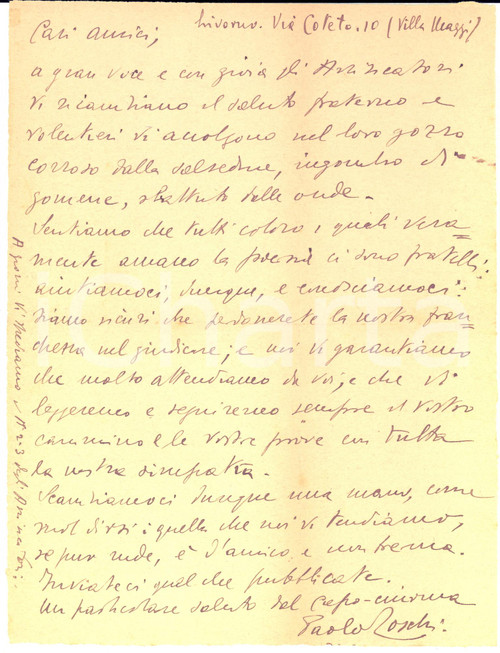 Livorno. Via Coteto. 10 (Villa Maggi)
Cari amici,
a gran voce e con gioia gli Avvisatori
vi ricambiano il saluto fraterno e
volentieri vi accolgono nel loro gozzo
corroso dalla salsedine, ingombro di
gomene, sbattuto dalle onde.
Sentiamo che tutti coloro i quali vera=
mente amano la poesia ci sono fratelli:
aiutiamoci, dunque, e conosciamoci:
siamo sicuri che perdonerete la nostra fran=
chezza nel giudicare; e noi vi garantiamo
che molto attendiamo da voi, e che vi
leggeremo e seguiremo sempre il vostro
cammino e le vostre prove con tutta
la nostra simpatia.
Scambiamoci dunque una mano, come
suol dirsi: quella che noi vi tendiamo,
se pur rude, è d'amico e non trema.
Inviateci quel che pubblicate.
Un particolare saluto dal capo-ciurma
Paolo Toschi.
A giorni vi spediamo il N. 2-3 degli